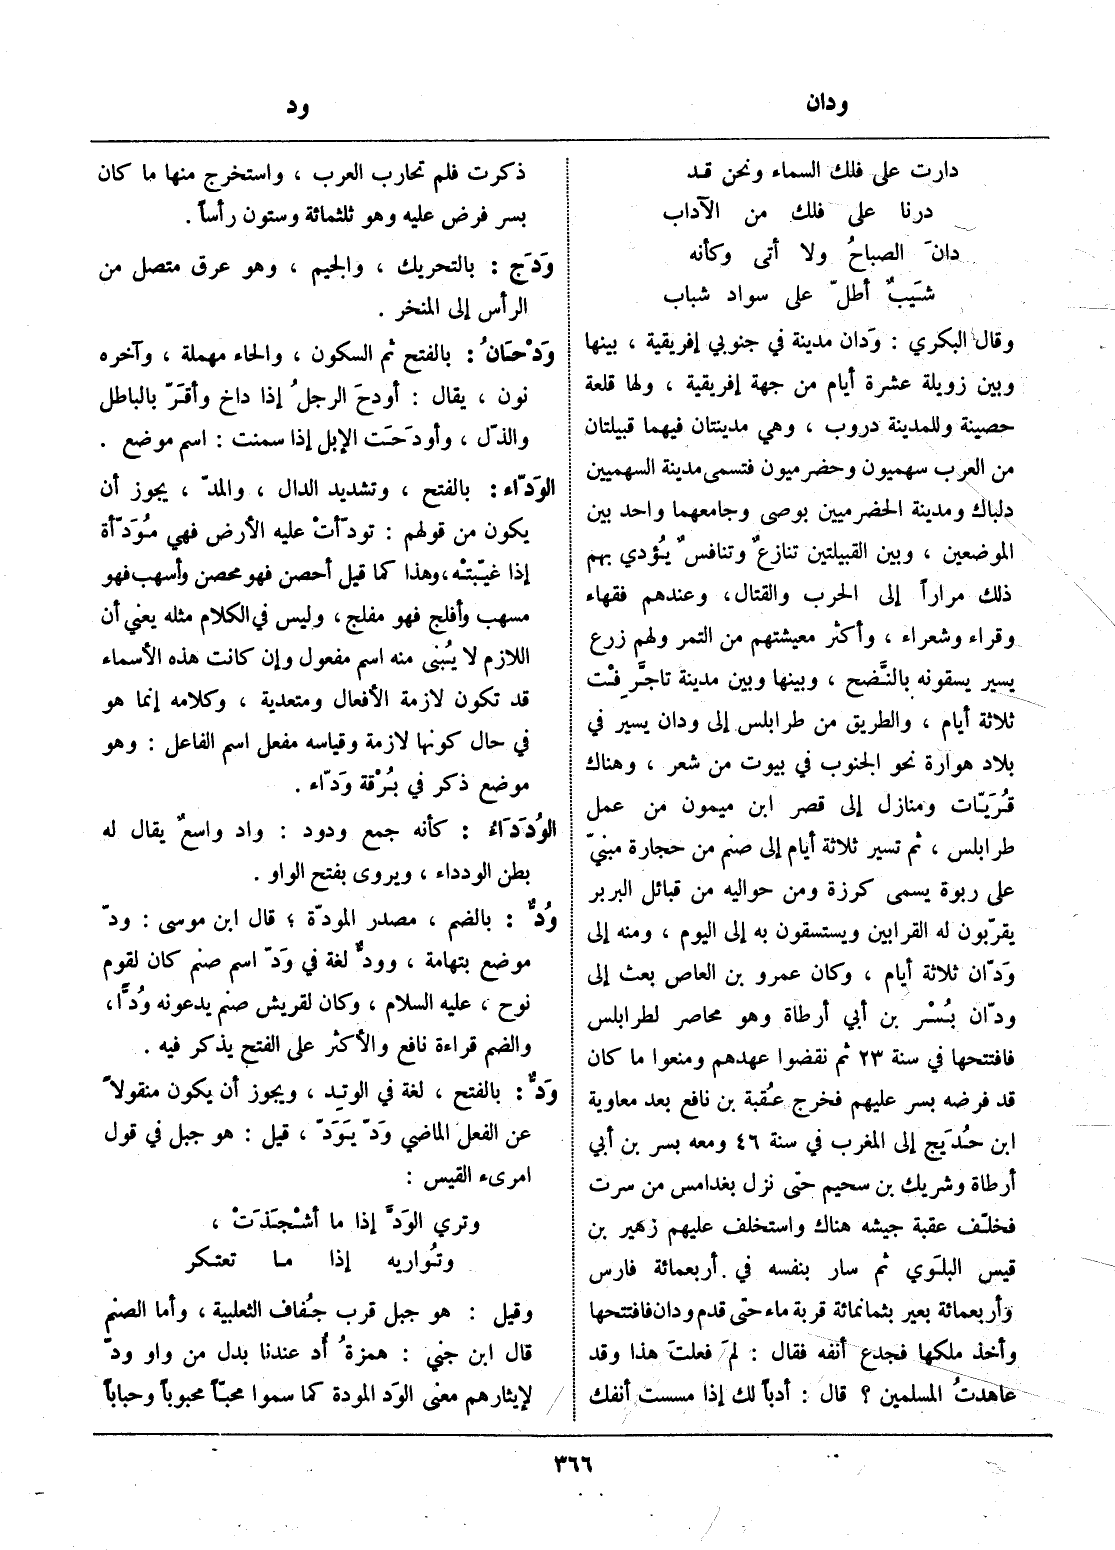 ودان
ود
دارت على فلك السماء ونحن قد
درنا على فلك من الآداب
دانَ الصباحُ ولا أتى وكأنه
شَيبٌ أطلّ على سواد شباب
وقال البكري : وَدان مدينة في جنوبي إفريقية ، بينها
وبين زويلة عشرة أيام من جهة إفريقية ، ولها قلعة
حصينة وللمدينة دروب ، وهي مدينتان فيهما قبيلتان
من العرب سهميون وحضرميون فتسمى مدينة السهميين
دلباك ومدينة الحضرميين بوصى وجامعهما واحد بين
الموضعين ، وبين القبيلتين تنازعٌ وتنافسٌ يُؤدي بهم
ذلك مراراً إلى الحرب والقتال، وعندهم فقهاء
وقراء وشعراء ، وأكثر معيشتهم من التمر ولهم زرع
يسير يسقونه بالنَّضح ، وبينها وبين مدينة تاجرَّفْت
ثلاثة أيام ، والطريق من طرابلس إلى ودان يسير في
بلاد هوارة نحو الجنوب في بيوت من شعر ، وهناك
قُرَيّات ومنازل إلى قصر ابن ميمون من عمل
طرابلس ، ثم تسير ثلاثة أيام إلى صنم من حجارة مبنيّ
على ربوة يسمى كرزة ومن حواليه من قبائل البربر
يقرّبون له القرابين ويستسقون به إلى اليوم ، ومنه إلى
وَدّان ثلاثة أيام ، وكان عمرو بن العاص بعث إلى
ودّان بُسْر بن أبي أرطاة وهو محاصر لطرابلس
فافتتحها في سنة ٢٣ ثم نقضوا عهدهم ومنعوا ما كان
قد فرضه بسر عليهم فخرج عُقبة بن نافع بعد معاوية
ابن حُدَيج إلى المغرب في سنة ٤٦ ومعه بسر بن أبي
أرطاة وشريك بن سحيم حتى نزل بغدامس من سرت
فخلّف عقبة جيشه هناك واستخلف عليهم زهير بن
قيس البلَوي ثم سار بنفسه في أربعمائة فارس
وأربعمائة بعير بثمانمائة قربة ماء حتى قدم ودان فافتتحها
وأخذ ملكها فجدع أنفه فقال : لمَ فعلتَ هذا وقد
عاهدتُ المسلمين ؟ قال : أدباً لك إذا مسست أنفك
ذكرت فلم تحارب العرب ، واستخرج منها ما كان
بسر فرض عليه وهو ثلثمائة وستون رأساً .
وَدَج : بالتحريك ، والجيم ، وهو عرق متصل من
الرأس إلى المنخر .
وَدْحَانُ : بالفتح ثم السكون ، والحاء مهملة ، وآخره
نون ، يقال : أودحَ الرجلُ إذا داخ وأقَرّ بالباطل
والذّل ، وأودَحَت الإبل إذا سمنت : اسم موضع .
الوَدّاء : بالفتح ، وتشديد الدال ، والمدّ ، يجوز أن
يكون من قولهم : تودّأتْ عليه الأرض فهي مُوَدّأة
إذا غيّبتْه، وهذا كما قيل أحصن فهو محصن وأسهب فهو
مسهب وأفلج فهو مفلج ، وليس في الكلام مثله يعني أن
اللازم لا يُبنى منه اسم مفعول وإن كانت هذه الأسماء
قد تكون لازمة الأفعال ومتعدية ، وكلامه إنما هو
في حال كونها لازمة وقياسه مفعل اسم الفاعل : وهو
موضع ذكر في بُرْقة وَدّاء .
الوُدَدَاءُ : كأنه جمع ودود : واد واسعٌ يقال له
بطن الودداء ، ويروى بفتح الواو .
وُدٌّ : بالضم ، مصدر المودّة ؛ قال ابن موسى : ودّ
موضع بتهامة ، وودٌّ لغة في وَدّ اسم صنم كان لقوم
نوح ، عليه السلام ، وكان لقريش صنم يدعونه وُدًّا،
والضم قراءة نافع والأكثر على الفتح يذكر فيه .
وَدٌّ : بالفتح ، لغة في الوتِد ، ويجوز أن يكون منقولاً
عن الفعل الماضي وَدّ يَوَدّ ، قيل : هو جبل في قول
امرىء القيس :
وتري الوَدَّ إذا ما أشْجَذَتْ ،
وتُواريه إذا ما تعتكر
وقيل : هو جبل قرب جُفاف الثعلبية ، وأما الصنم
قال ابن جني : همزةُ أُد عندنا بدل من واو ودّ
لإيثارهم معنى الوَد المودة كما سموا محبّاً محبوباً وحباباً
٣٦٦